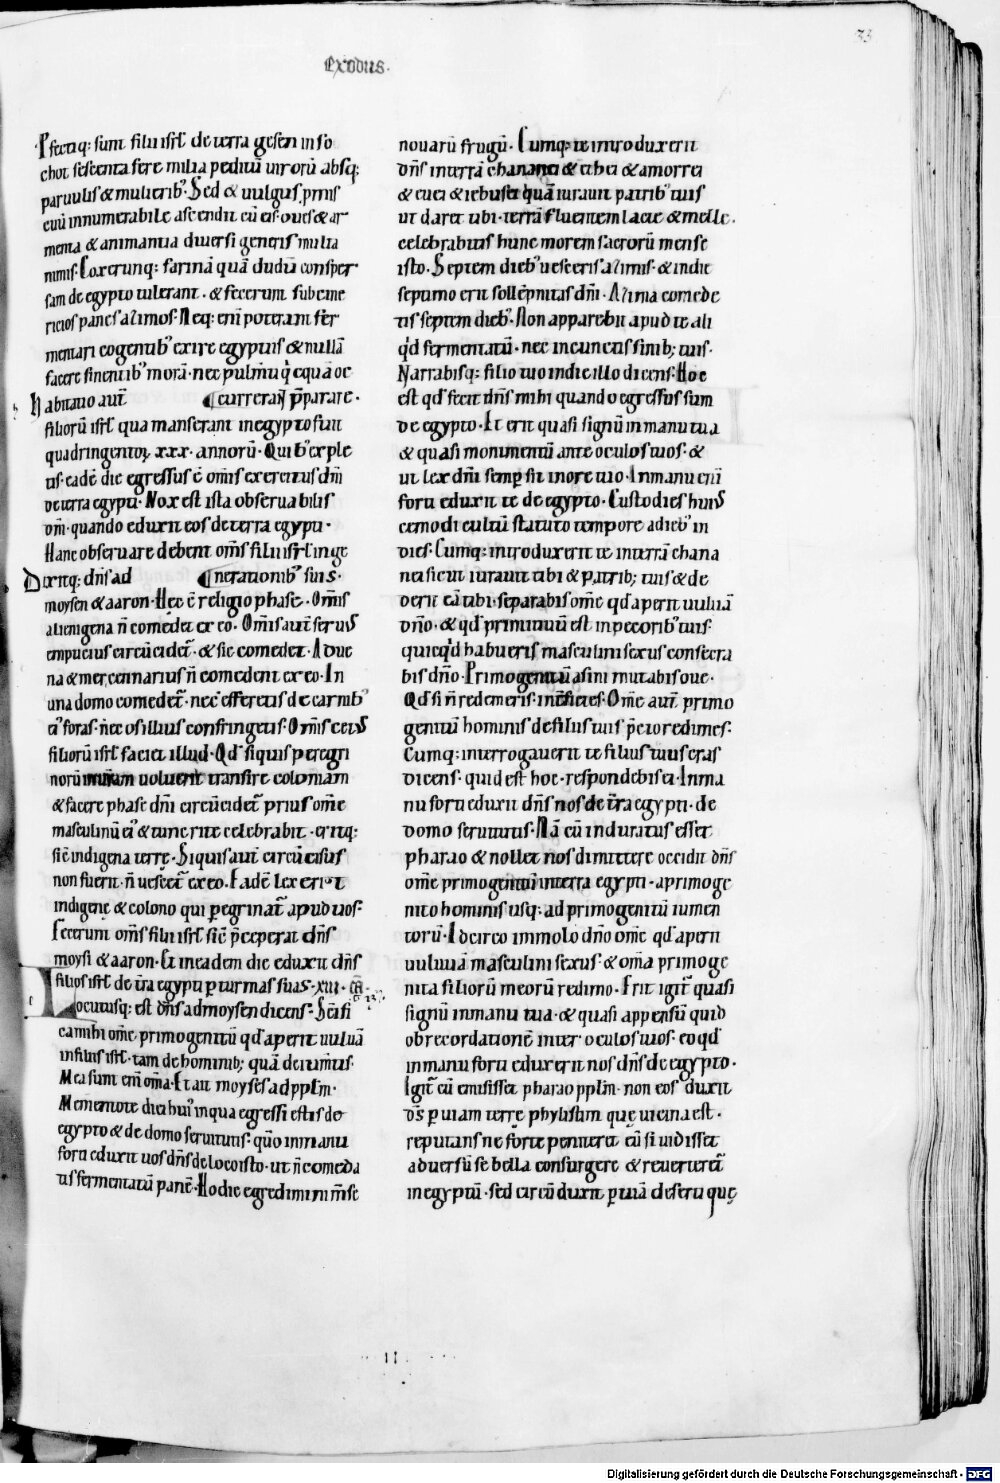 33
Exodus.
Pfectiq; sunt filii isrl̄ de terra gesen in so
choc sescenta fere milia peditū virorū absq;
paruulis & mulierib; Sed & uulgus pmis
cuū innumerabile ascendit cū eis. oues & ar
menta & animantia diuersi generis multa
nimis. Coxeruntq; farinā quā dudū consper
sam de egypto tulerant. & fecerunt subcine
ricios panes azimos. Neq; eni poterant fer
mentari cogentib; exire egyptiis & nullā
facere sinentib; morā. nec pulmti qcquā oc
habitatio aut̄ currerat p̄parare.
filiorū isrl̄ qua manserant in egypto fuit
quadringentoꝝ xxx. annorū. Quib; exple
tis. eadē die egressus ē om̄is exercitus dn̄i
de terra egypti. Nox est ista obseruabilis
dn̄i. quando eduxit eos de terra egypti.
Hanc obseruare debent om̄s filii isrl̄ in ge
Dixitq; dn̄s ad nerationib; suis.
moysen & aaron. Hec ē religio phase. Om̄is
alienigena n̄ comedet ex eo. Om̄is aut̄ seruus
empticius circūcidet̄. & sic comedet. Adue
na & mercennarius n̄ comedent ex eo. In
una domo comedet̄. nec efferetis de carnib;
ei' foras. nec os illius confringetis. Om̄is cetus
filiorū isrl̄ faciet illud. Qd̄ si quis peregri
norū in uram uoluerit transire coloniam
& facere phase dn̄i circūcidet̄ prius om̄e
masculinū ei' & tunc rite celebrabit. eritq;
sic indigena terre. Siquis aut̄ circūcisus
non fuerit. n̄ uescet̄ ex eo. Eadē lex erit
indigene & colono qui pegrinat̄ apud uos.
Fecerunt om̄s filii isrl̄ sic p̄ceperat dn̄s
moysi & aaron. Et in eadem die eduxit dn̄s
filios isrl̄ de tr̄a egypti p turmas suas. XIII. cā.
Locutusq; est dn̄s ad moysen dicens. Scifi
ca mihi om̄e primogenitū qd̄ aperit uuluā
in filiis isrl̄. tam de hominib; quā de iumtis.
Mea sunt eni om̄a. Et ait moyses ad pplm̄.
Mementote diei hui' in qua egressi estis de
egypto & de domo seruitutis. qm̄ in manu
forti eduxit uos dn̄s de loco isto. ut n̄ comeda
tis fermentatū panē. Hodie egredimini m̄se
nouarū frugū. Cumq; te introduxerit
dn̄s in terrā chananei & ethei & amorrei
& euei & iebusei quā iurauit patrib; tuis
ut daret tibi. terrā fluentem lacte & melle.
celebrabitis hunc morem sacrorū mense
isto. Septem dieb; uesceris azimis. & in die
septimo erit sollēpnitas dn̄i. Azima comede
tis septem dieb; Non apparebit apud te ali
qd̄ fermentatū. nec in cunctis finib; tuis.
Narrabisq; filio tuo in die illo dicens. Hoc
est qd̄ fecit dn̄s mihi quando egressus sum
de egypto. Et erit quasi signū in manu tua
& quasi monumentū ante oculos tuos. &
ut lex dn̄i semp̄ sit in ore tuo. In manu eni
forti eduxit te de egypto. Custodies huius
cemodi cultū statuto tempore a dieb; in
dies. Cumq; introduxerit te in terrā chana
nei sicut iurauit tibi & patrib; tuis & de
derit eā tibi. separabis om̄e qd̄ aperit uuluā
dn̄o. & qd̄ primitiuū est in pecorib; tuis.
quicqd̄ habueris masculini sexus consecra
bis dn̄o. Primogenitū asini mutabis oue.
Qd̄ si n̄ redemeris. interficies. Om̄e aut̄ primo
genitū hominis de filiis tuis p̄cio redimes.
Cumq; interrogauerit te filius tuus cras
dicens. quid est hoc. respondebis ei. In ma
nu forti eduxit dn̄s nos de tr̄a egypti. de
domo seruitutis. Nā cū induratus esset
pharao & nollet nos dimittere occidit dn̄s
om̄e primogenitū in terra egypti. a primoge
nito hominis usq; ad primogenitū iumen
torū. Idcirco immolo dn̄o om̄e qd̄ aperit
uuluuā masculini sexus. & om̄a primoge
nita filiorū meorū redimo. Erit igit̄ quasi
signū in manu tua. & quasi appensū quid
ob recordationē inter oculos tuos. eo qd̄
in manu forti eduxerit nos dn̄s de egypto.
Igit̄ cū emisisset pharao pplm̄. non eos duxit
ds̄ p uiam terre phylistim que uicina est.
reputans ne forte peniteret eū si uidisset
aduersū se bella consurgere & reuerteret̄
in egyptū. sed circūduxit p uiā deserti que
II
Digitalisierung gefördert durch die Deutsche Forschungsgemeinschaft - DFG